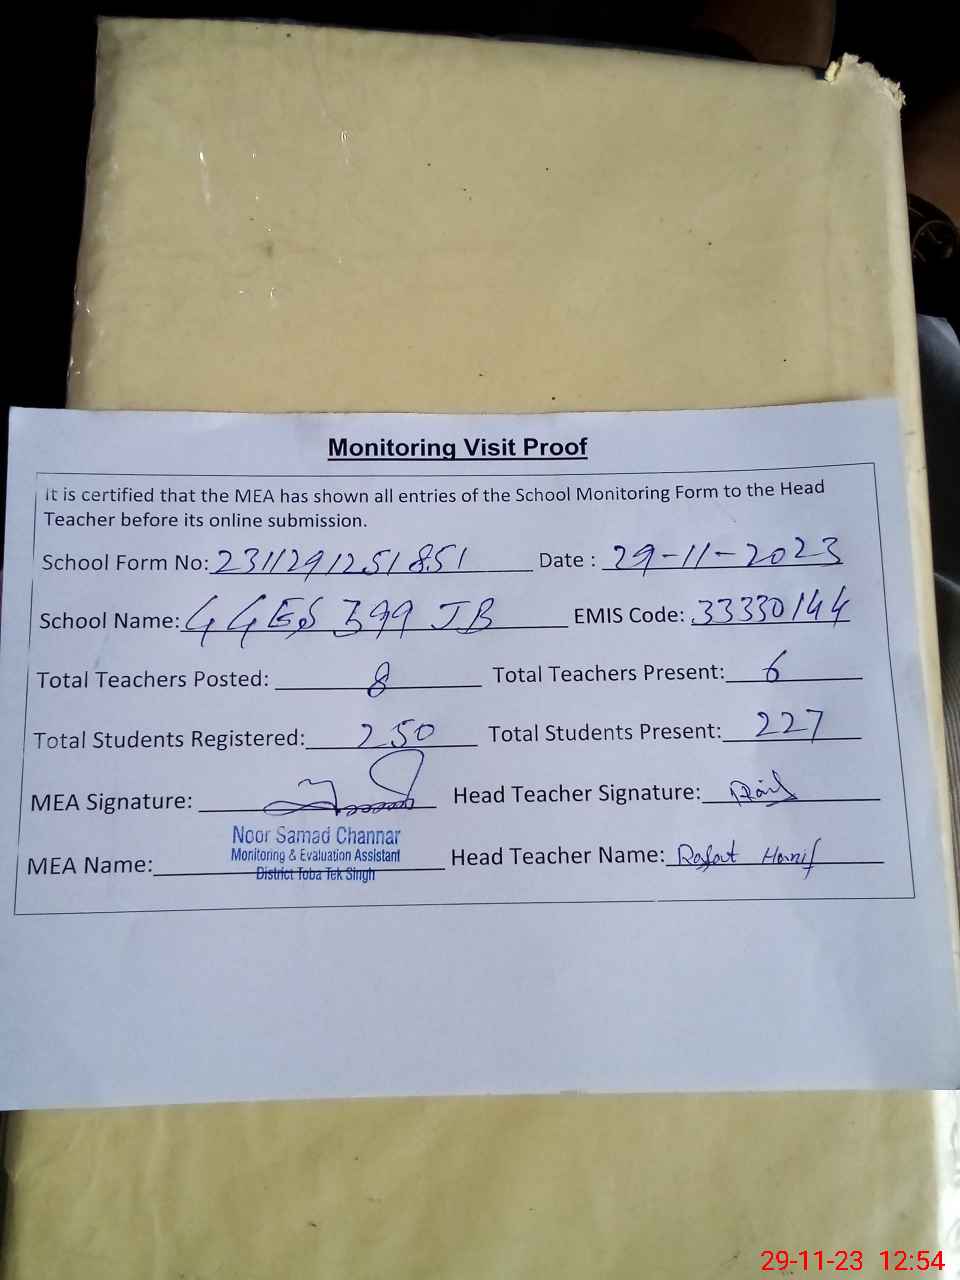 Monitoring Visit Proof
It is certified that the MEA has shown all entries of the School Monitoring Form to the Head
Teacher before its online submission.
School Form No: 2311291251851 Date : 29-11-2023
School Name: GGES 399 JB EMIS Code: 33330144
Total Teachers Posted: 8 Total Teachers Present: 6
Total Students Registered: 250 Total Students Present: 227
MEA Signature: Head Teacher Signature:
Noor Samad Channar
Monitoring & Evaluation Assistant
District Toba Tek Singh
MEA Name: Head Teacher Name: Rafat Hanif
29-11-23 12:54